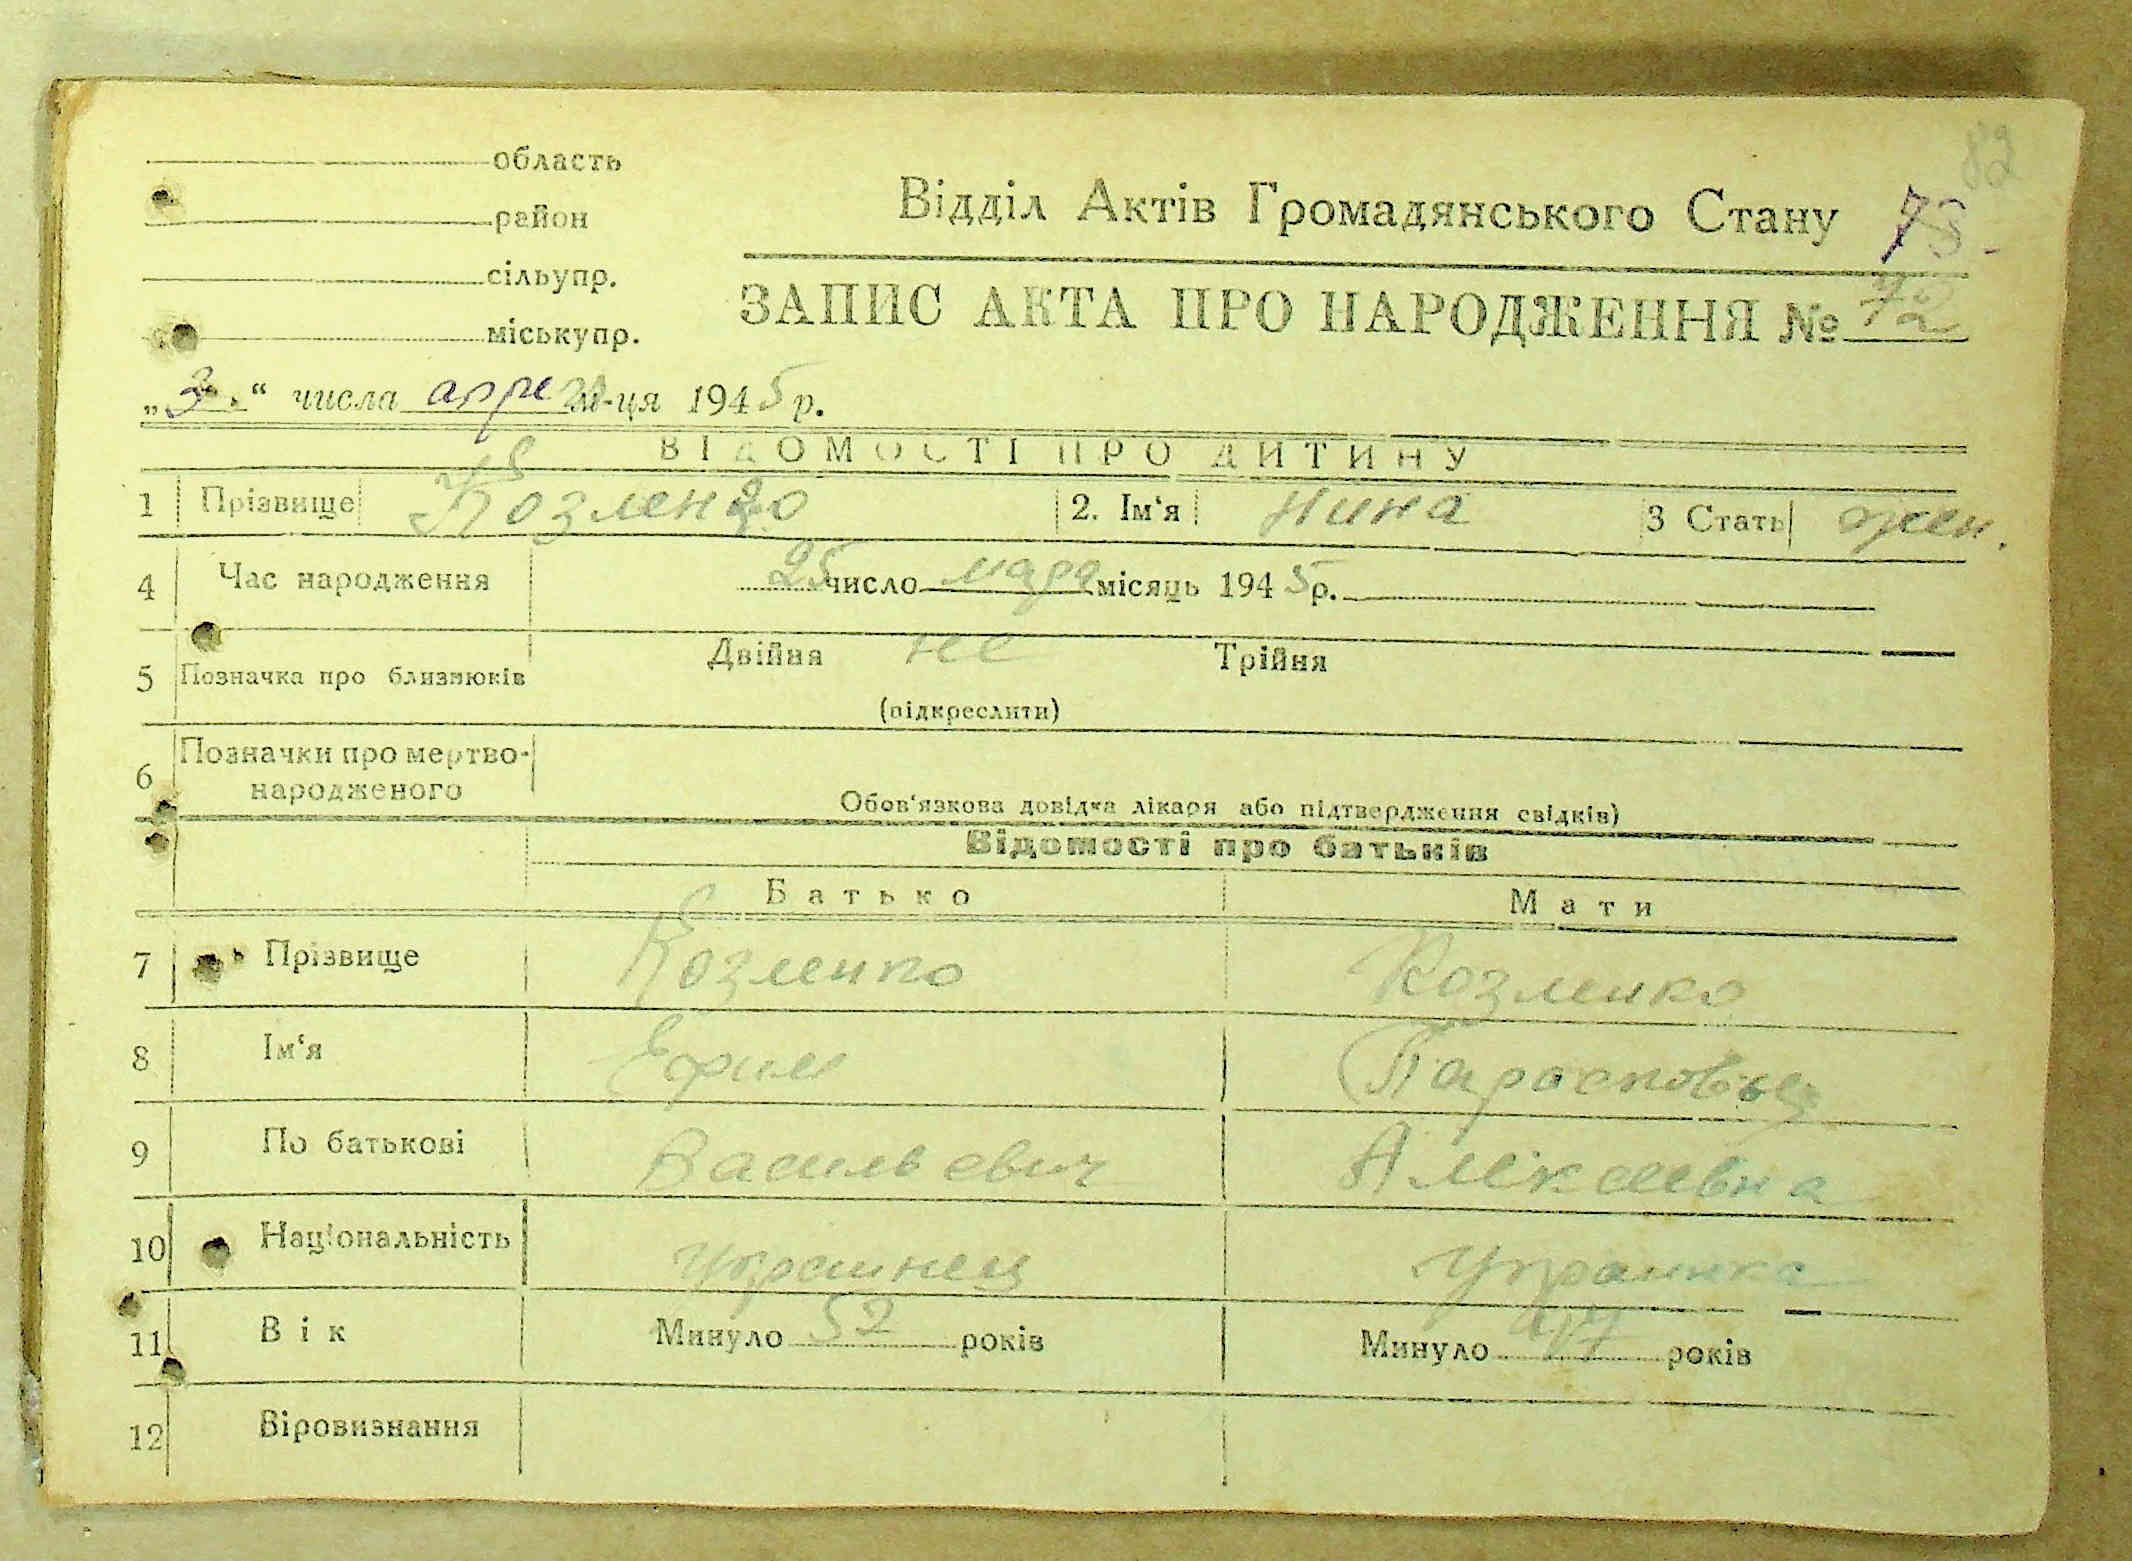 82
область
район
сільупр.
міськупр.
Відділ Актів Громадянського Стану
ЗАПИС АКТА ПРО НАРОДЖЕННЯ № 72
„3“ числа апре м-ця 1945 р.
ВІДОМОСТІ ПРО ДИТИНУ
1 Прізвище Козленко 2. Ім‘я Нина 3 Стать жен.
4 Час народження 25 число мара місяць 1945 р.
5 Позначка про близнюків Двійня не Трійня
(підкреслити)
6 Позначки про мертво-
народженого
Обов‘язкова довідка лікаря або підтвердження свідків)
Відомості про батьків
Батько Мати
7 Прізвище Козленко Козленко
8 Ім‘я Ефим
9 По батькові Васильевич Алексеевна
10 Національність Украинец Украинка
11 Вік Минуло 52 років Минуло 47 років
12 Віровизнання